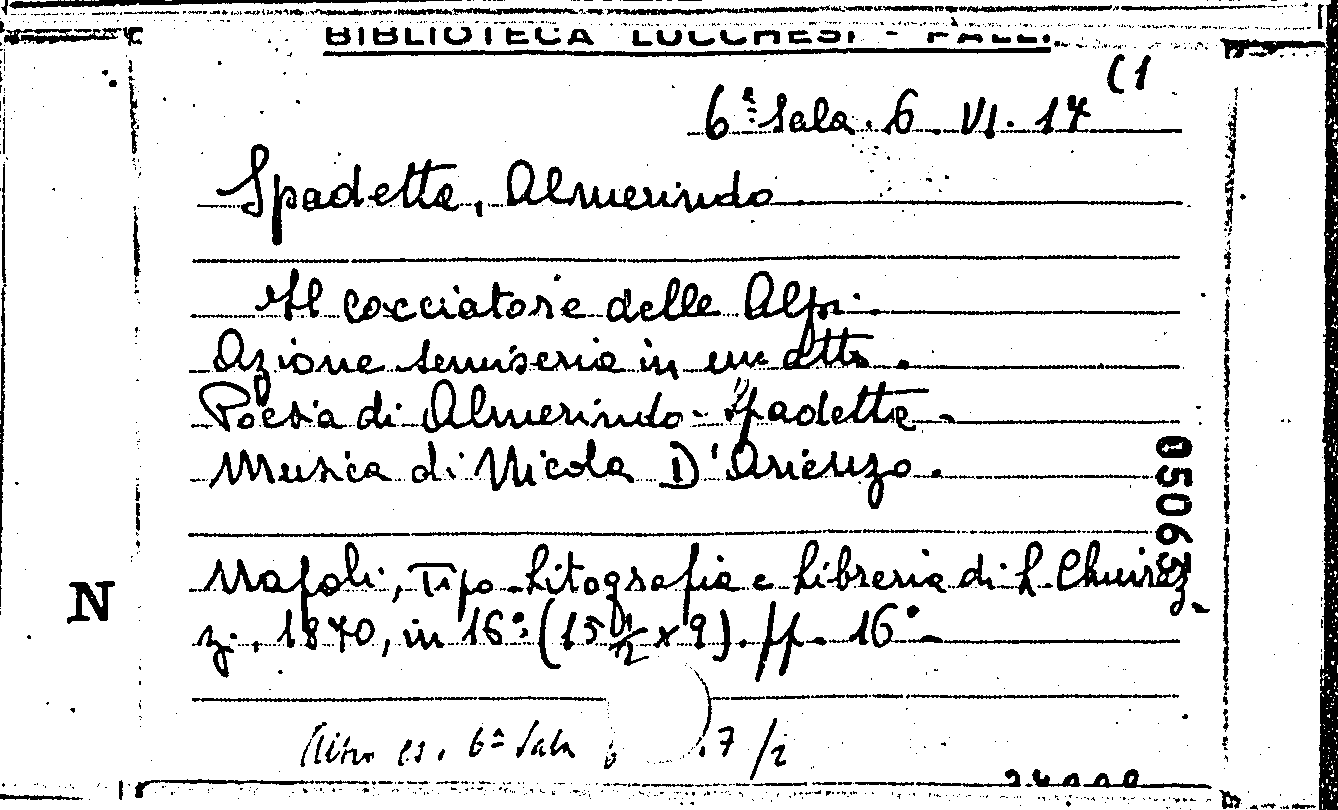 BIBLIOTECA LUCCHESI - PALLI
6ª Sala. 6. VI. 17 (1
Spadetta, Almerindo
Il cacciatore delle Alpi.
Azione semiseria in un atto.
Poesia di Almerindo Spadetta -
Musica di Nicola D'Arienzo.
05063
Napoli, Tipo-Litografia e Libreria di L. Chiuraz-
N
zi, 1870, in 16°. (15 1/2 x 9). pp. 16 -
Altro es. 6ª Sala .7/2